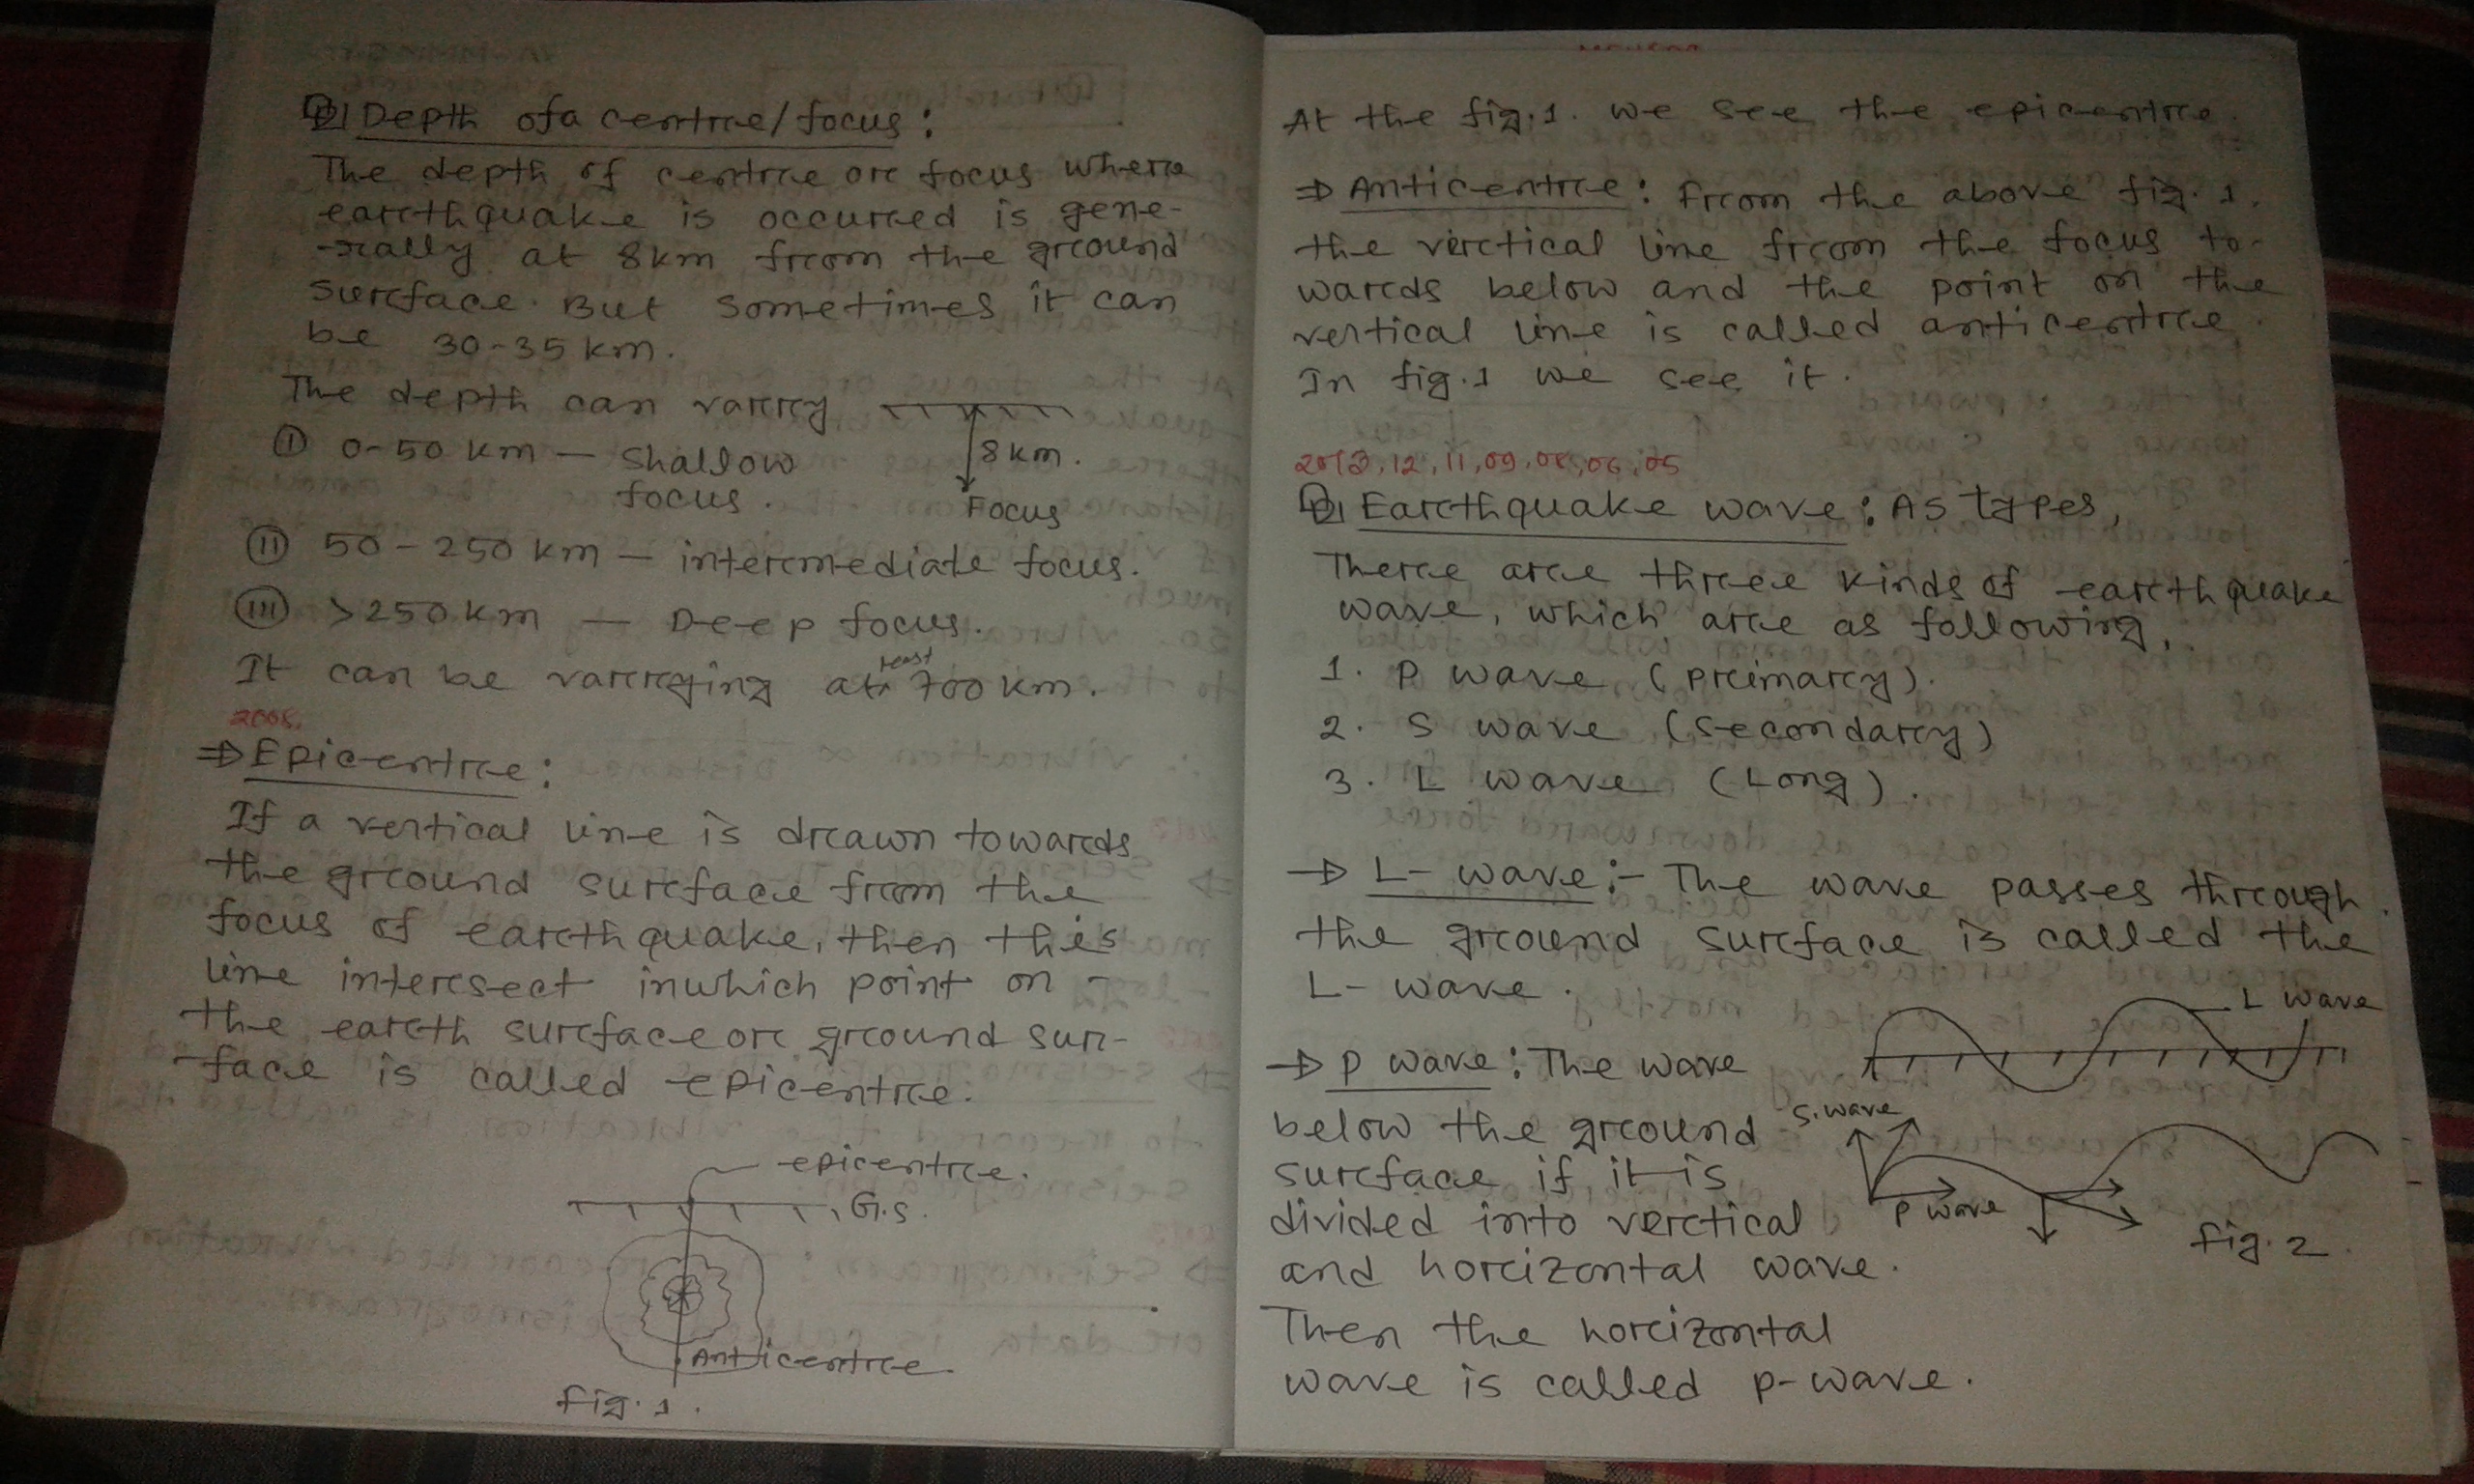 Depth of a centre/focus:
The depth of centre or focus where
earthquake is occurred is gene-
-rally at 8km from the ground
surface. But sometimes it can
be 30-35 km.
The depth can varry
8 km.
Focus
(I) 0-50 km - Shallow
focus.
(II) 50-250 km - intermediate focus.
(III) >250 km - Deep focus.
It can be varrying at least 700 km.
⇒ Epicentre:
If a vertical line is drawn towards
the ground surface from the
focus of earthquake, then this
line intersect in which point on
the earth surface or ground sur-
-face is called epicentre.
epicentre.
G.S.
Anticentre.
fig. 1.
At the fig. 1. we see the epicentre.
⇒ Anticentre: From the above fig. 1.
the vertical line from the focus to-
wards below and the point on the
vertical line is called anticentre.
In fig. 1 we see it.
2013, 12, 11, 09, 08, 06, 05
Earthquake wave: As types,
There are three kinds of earthquake
wave, which are as following,
1. P wave (Primary).
2. S wave (Secondary)
3. L wave (Long).
→ L- wave:- The wave passes through
the ground surface is called the
L- wave.
L wave
→ P wave: The wave
below the ground
surface if it is
divided into vertical
and horizontal wave.
Then the horizontal
wave is called p-wave.
S. wave
P wave
fig. 2.